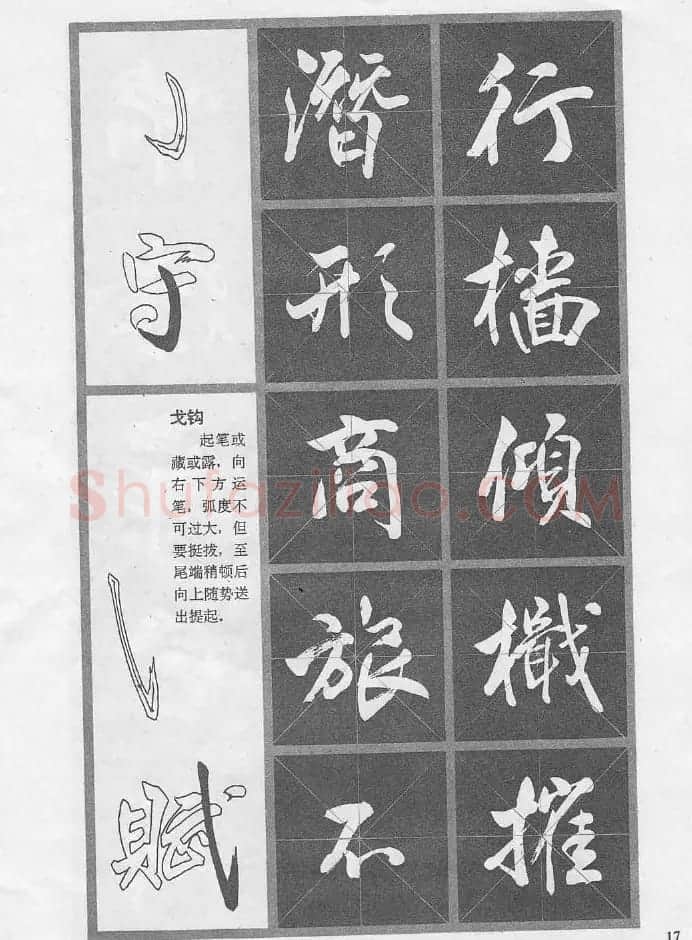 守
戈钩
起笔或
藏或露，向
右下方运
笔，弧度不
可过大，但
要挺拔，至
尾端稍顿后
向上随势送
出提起。
賦
潛形商旅不
行檣傾檝摧
Shufaziliao.COM
17